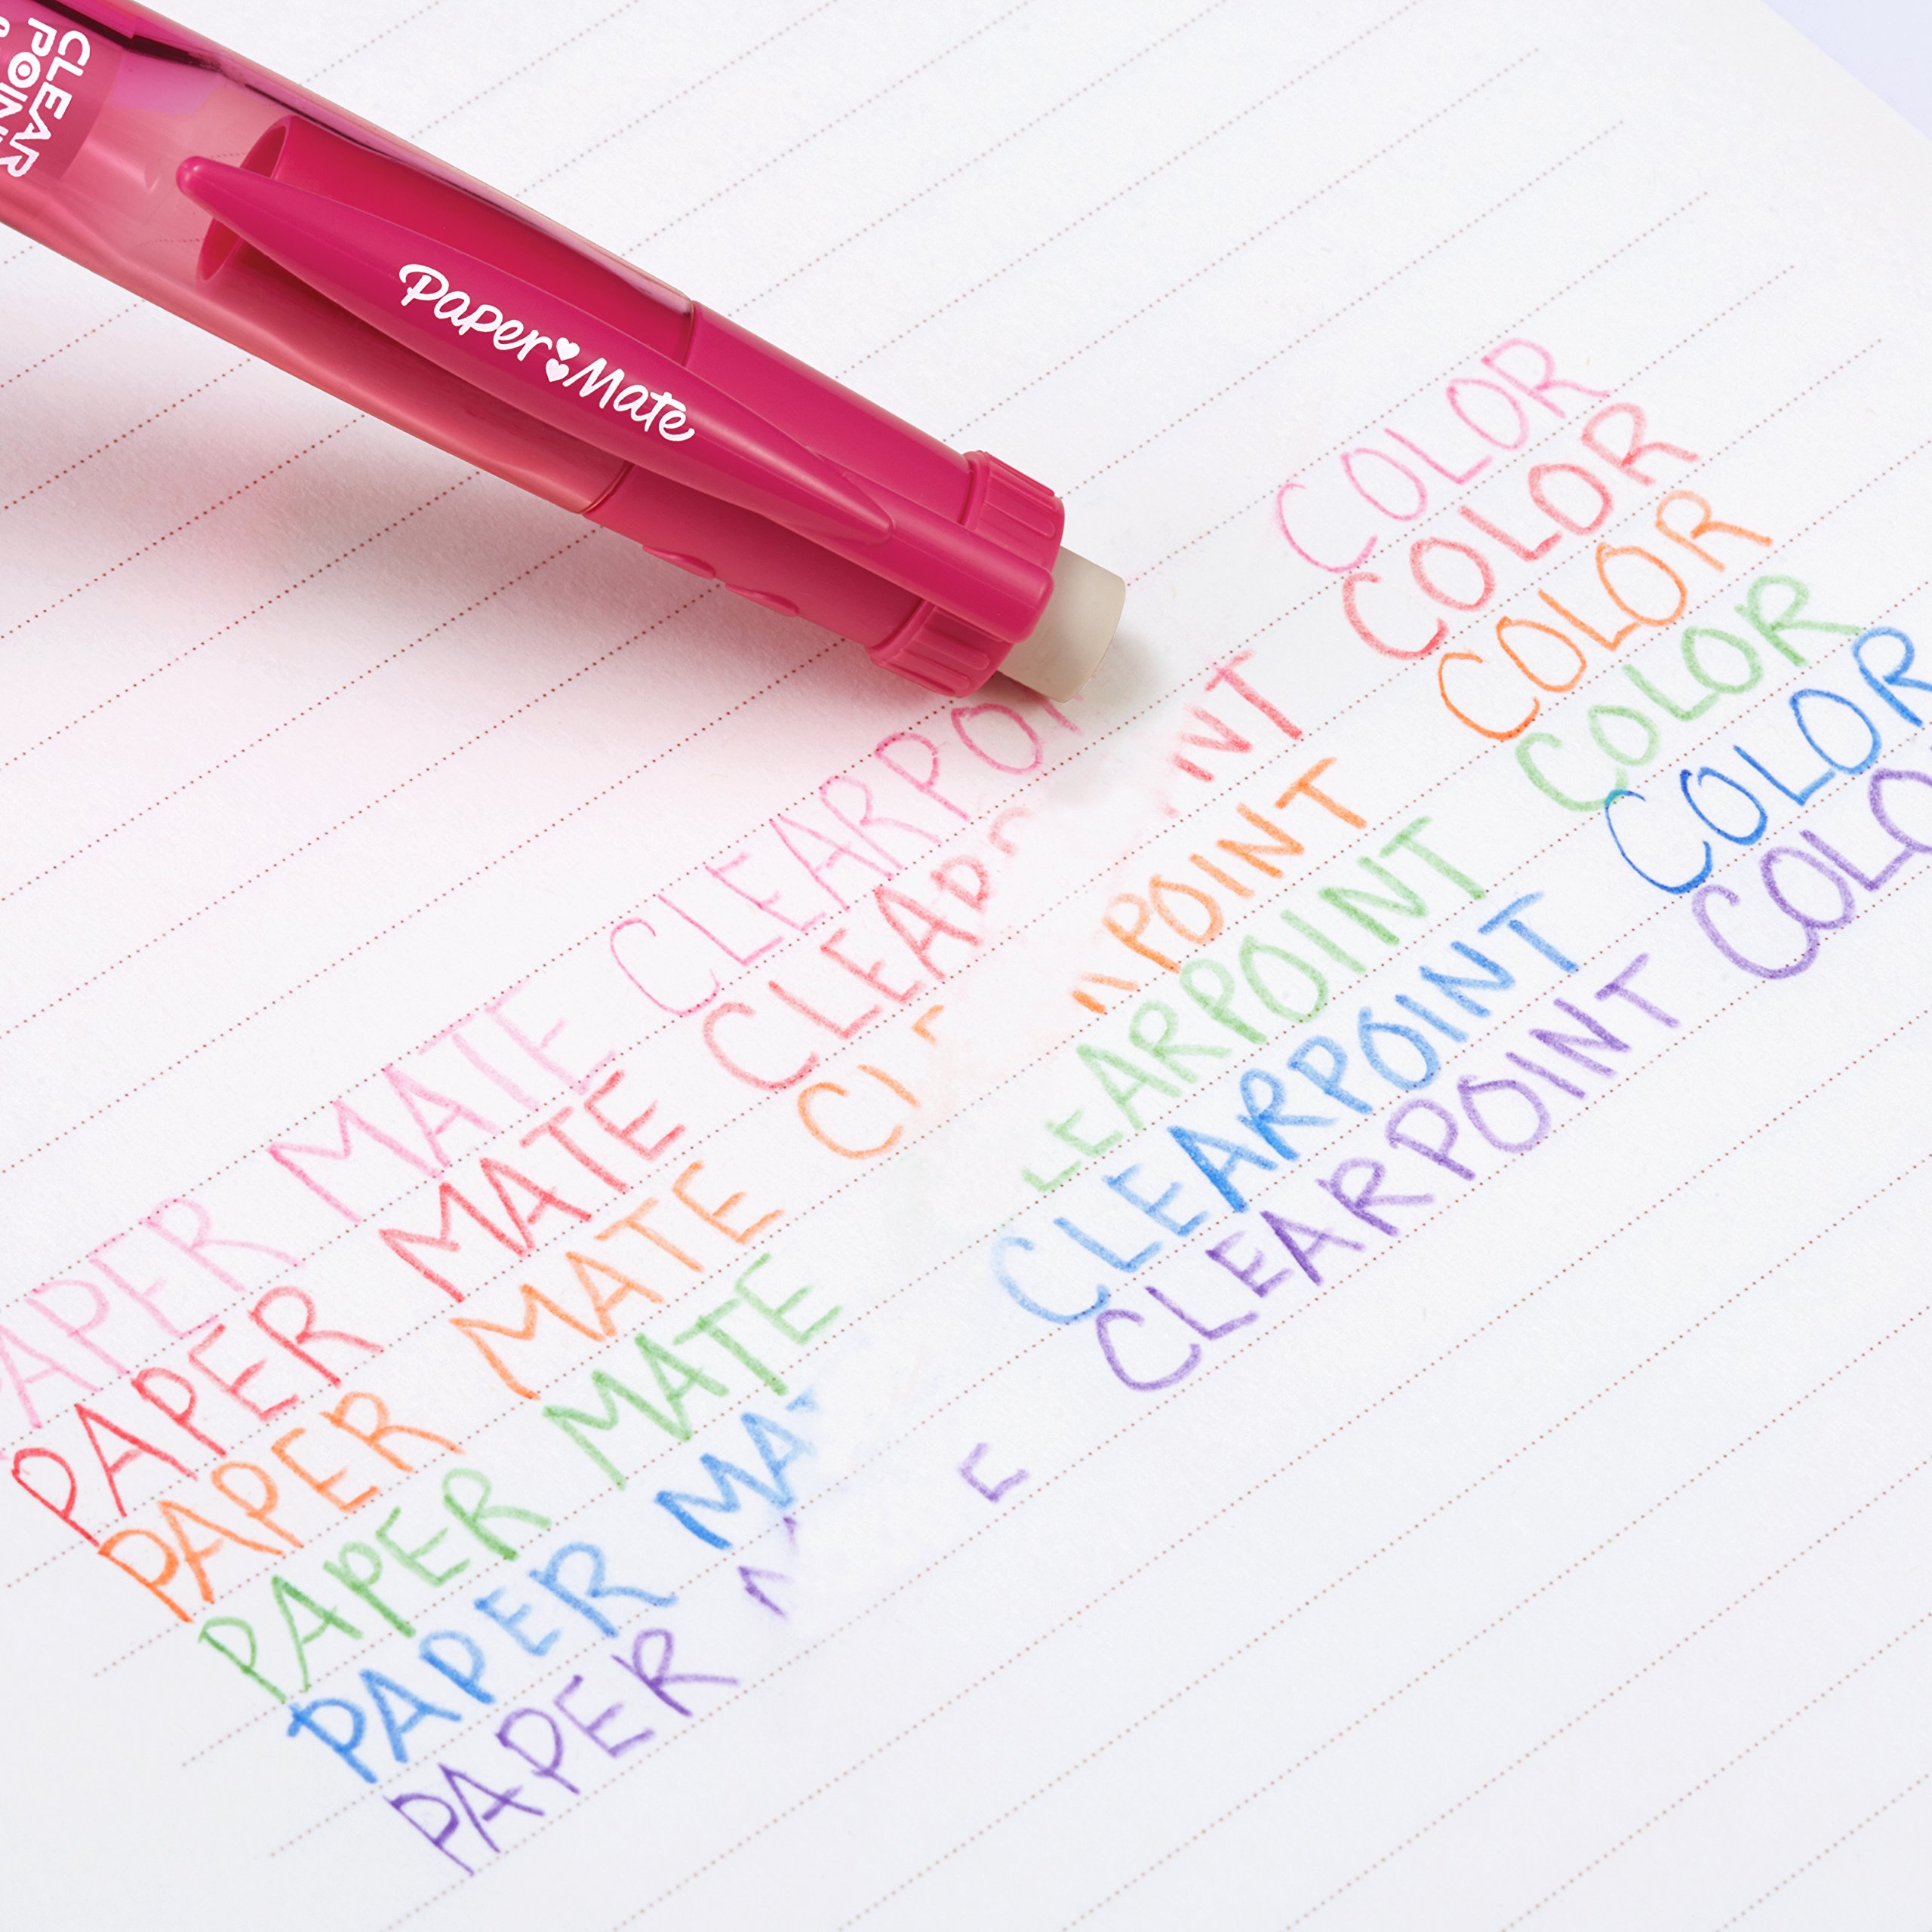 CLEAR
POINT
Paper Mate
APER MATE CLEARPOI COLOR
PAPER MATE CLEAR NT COLOR
PAPER MATE CL POINT COLOR
PAPER MATE LEARPOINT COLOR
PAPER MA CLEARPOINT COLOR
PAPER E CLEARPOINT COLO